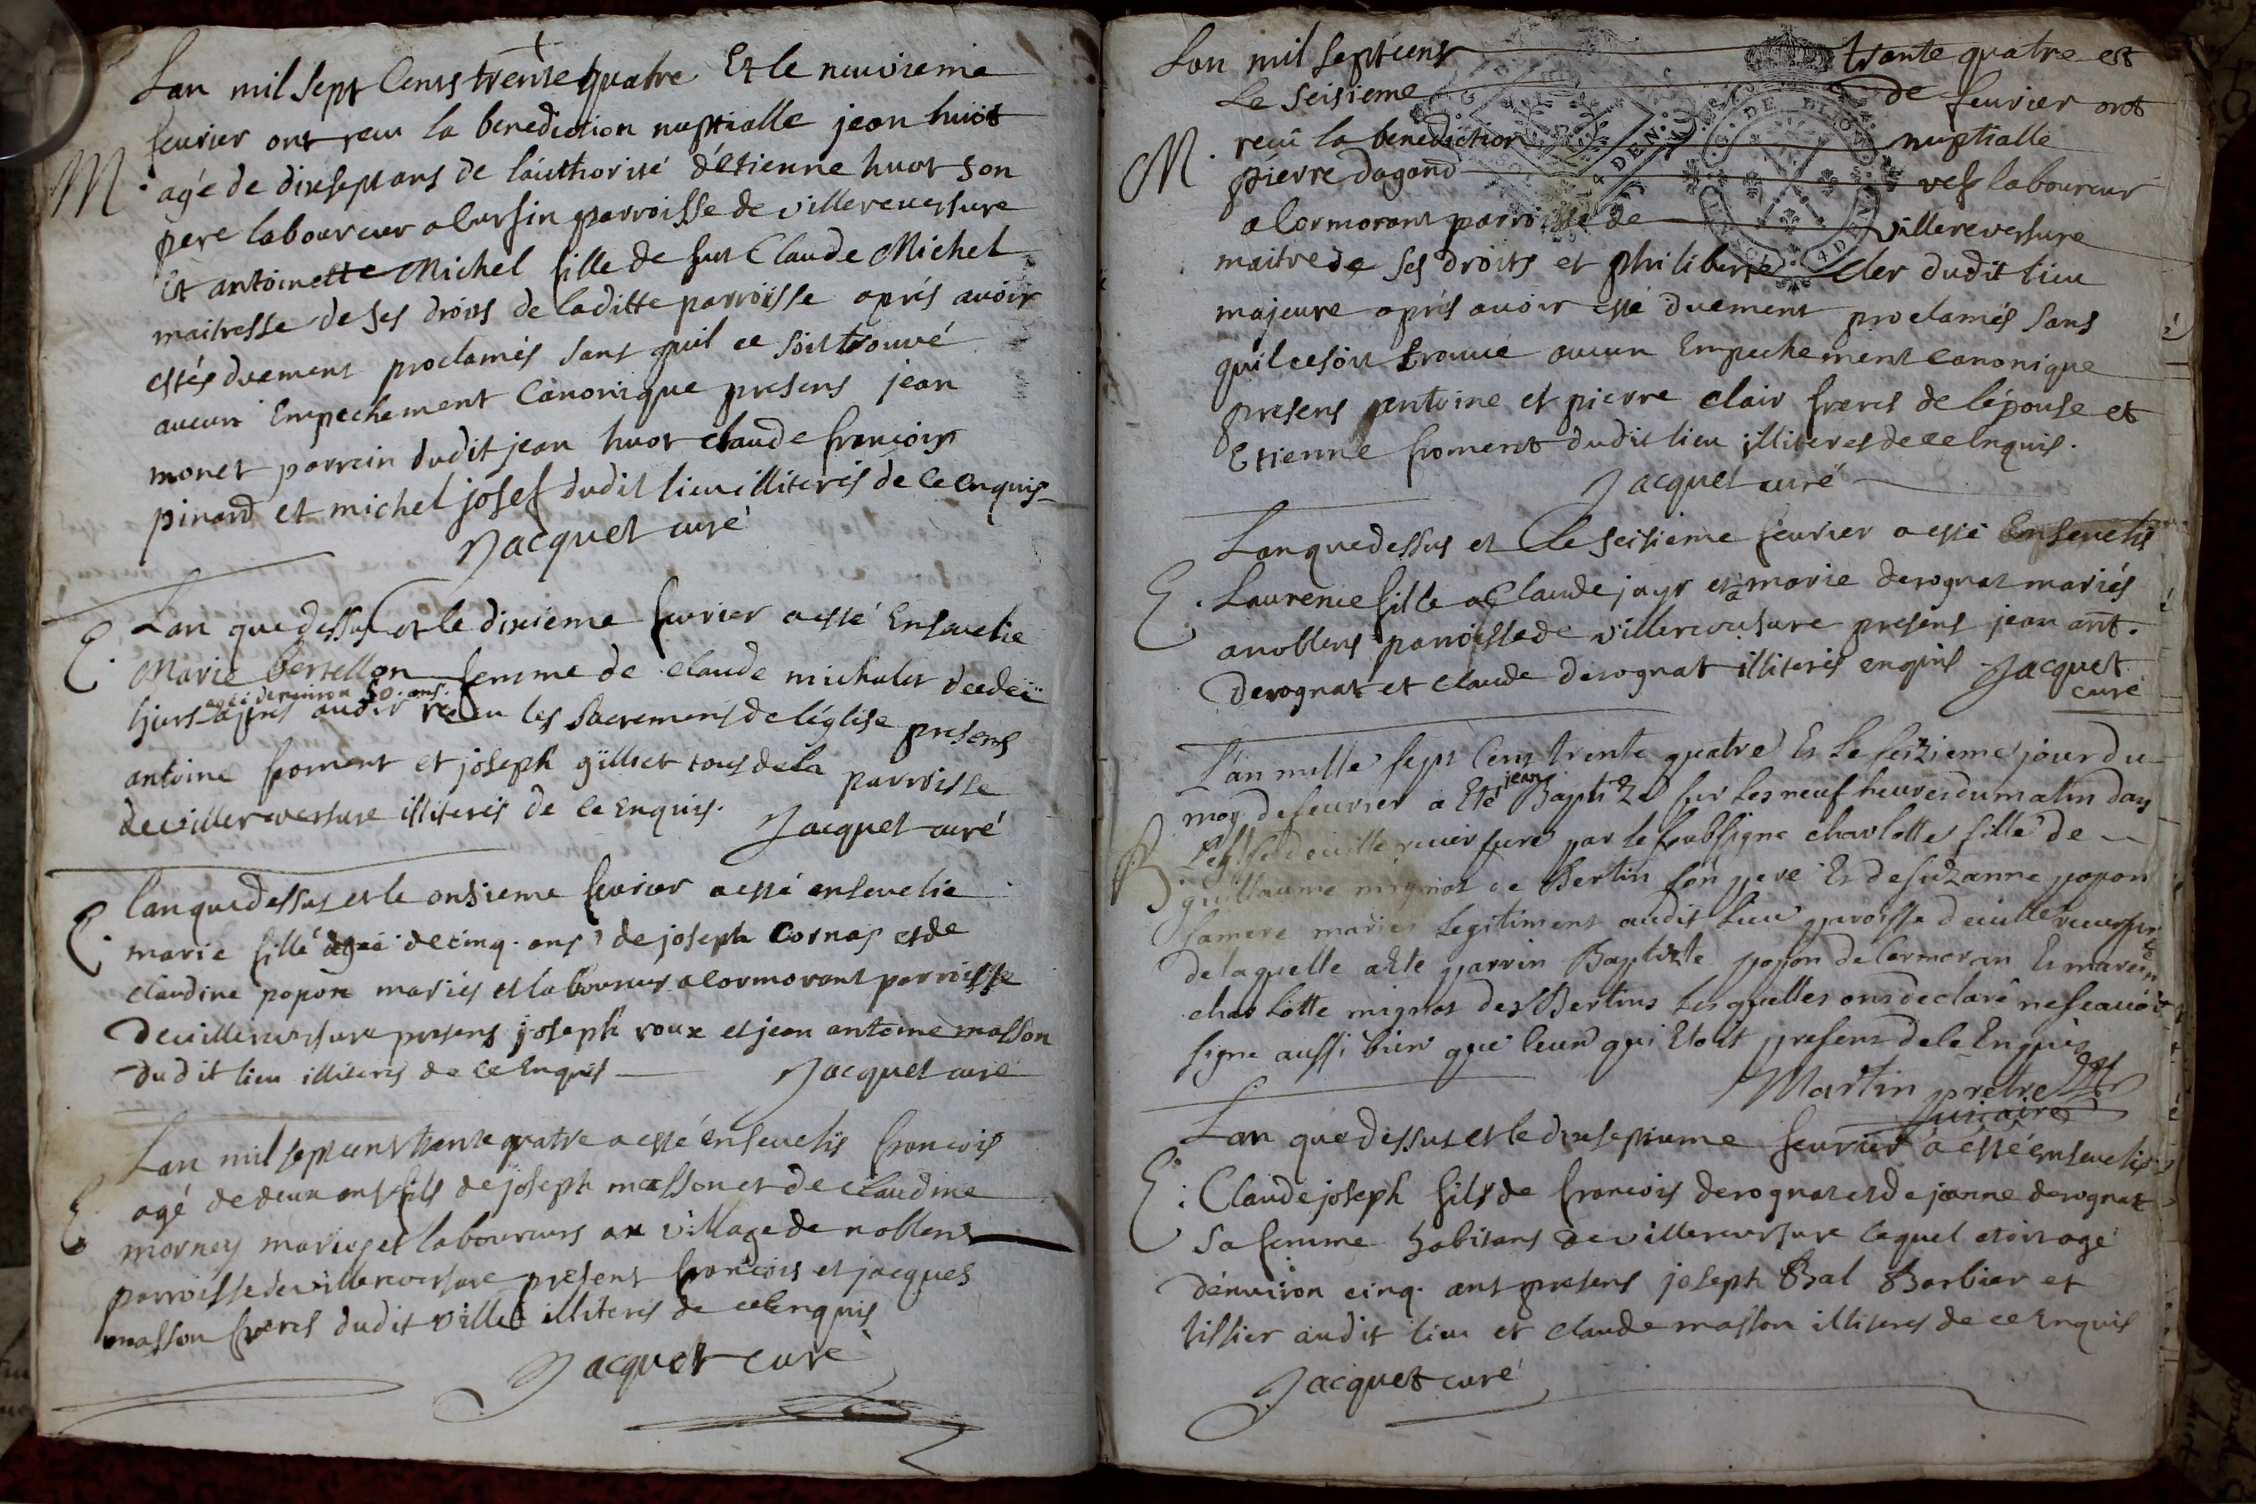 Lan mil sept Cents trente quatre Et le neuvieme
fevrier ont reçu la benediction nuptialle jean huot
M. agé de dixsept ans de l'authorité d'étienne huot son
pere laboureur a Cursin parroisse de villereversure
Et antoinette Michel fille de fut Claude Michel
maitresse de ses droits de laditte parroisse aprés avoir
estés duement proclamés sans quil ce soit trouvé
aucun Empechement Canonique presens jean
monet parrein dudit jean huot claude françois
pinard et michel josef dudit lieu illiterés de ce enquis
Jacquet curé
Lan que dessus et le dixieme fevrier a esté Ensevelie
E. Marie bertellon femme de claude michalet
agée denviron 50. ans.
aprés avoir reçu les Sacremens de l'église presens
antoine froment et joseph gilliet tous de la parroisse
de villereversure illiterés de ce Enquis. Jacquet curé
lan que dessus et le onsieme fevrier a esté ensevelie
E. marie fille agée de cinq. ans de joseph Cornaz et de
claudine popon mariés et laboureur a cormorant parroisse
de villereversure presens joseph roux et jean antoine masson
dudit lieu illiterés de ce Enquis Jacquet curé
Lan mil sept cens trante quatre a esté ensevelis françois
E. agé de deux ans fils de joseph masson et de claudine
morney mariés et laboureurs au village de noblens
parroisse de villereversure presens françois et jacques
masson freres dudit ville illiterés de ce enquis
Jacquet curé
Lan mil sept cens trante quatre et
le seisieme de fevrier ont
reçu la benediction nuptialle
M. pierre dagand vef laboureur
a Cormorant parroisse de villereversure
maitre de ses droits et philiberte Cler dudit lieu
majeure aprés avoir esté duement proclamés sans
quil ce soit trouvé aucun Empechement canonique
presens antoine et pierre clair freres de l'épouse et
Etienne froment dudit lieu illiteres de ce Enquis.
Jacquet curé
Lan que dessus et le seisieme fevrier a esté Ensevelis
E. Laurence fille a Claude jayr et a marie derognat mariés
a noblens parroisse de villereversure presens jean ant.
derognat et claude derognat illiterés enquis Jacquet
curé
L'an mille sept Cens trente quatre Et le seizieme jour du
jean
moy de feuvrier a Eté Baptizé sur les neuf heures du matin dans
B. L'eglise de villereversure par le soubsigné charlotte fille de
guillaume mignot de Bertin son pere Et de suzanne popon
sa mere mariés Legitiment audit lieu parroisse de villereversure
de laquelle a Eté parrin Baptizte popon de Cormoran Et mareine
charlotte mignot des Bertins lesquelles ons declaré ne scavoir
signe aussi bien que ceux qui Etoit presens de le Enquis
Martin pretre
vicaire
Lan que dessus et le dixseptieme fevrier a esté ensevelis
E. Claude joseph fils de françois derognat et de jeanne derognat
sa femme habitans de villereversure lequel etoit agé
d'environ cinq. ans presens joseph Bal Barbier et
tissier audit lieu et claude masson illiteres de ce Enquis
Jacquet curé